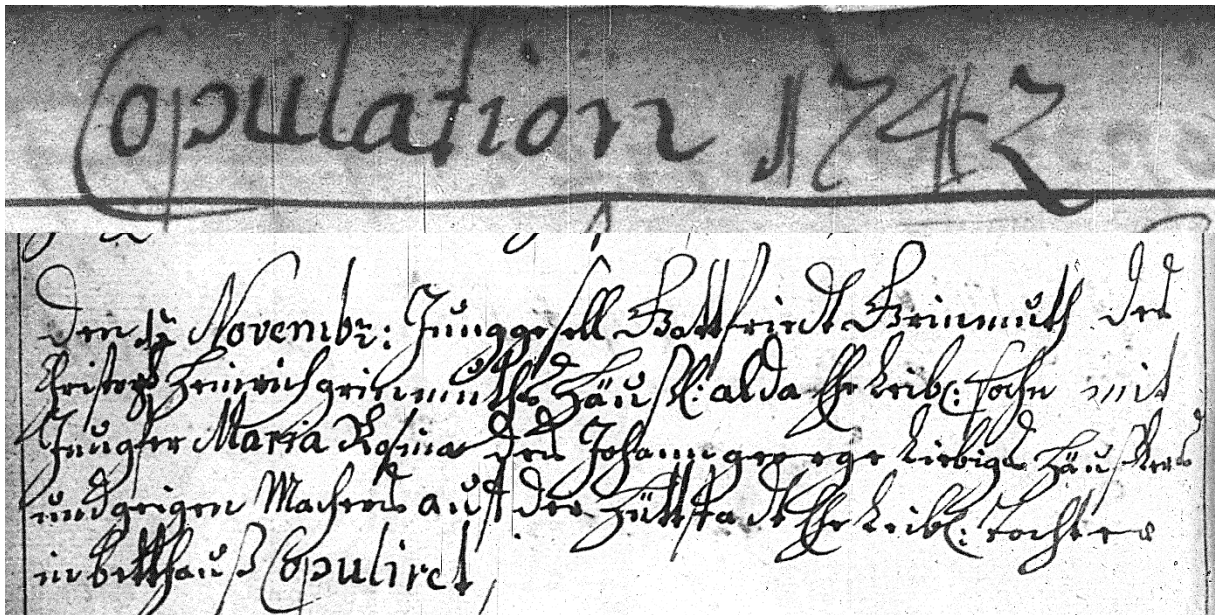 Copulation 1742
den Novembr: Junggesell Gottfriedt Grinmuth des
Christoph Heinrich grinmuths Häußl: alda Ehe Leibl: Sohn mit
Jungfer Maria Rosina des Johann george Liebigs Häußlers
und geigen Machers auß der Hüttstadt Ehe Leibl: Tochter
in betthauß Copuliret,